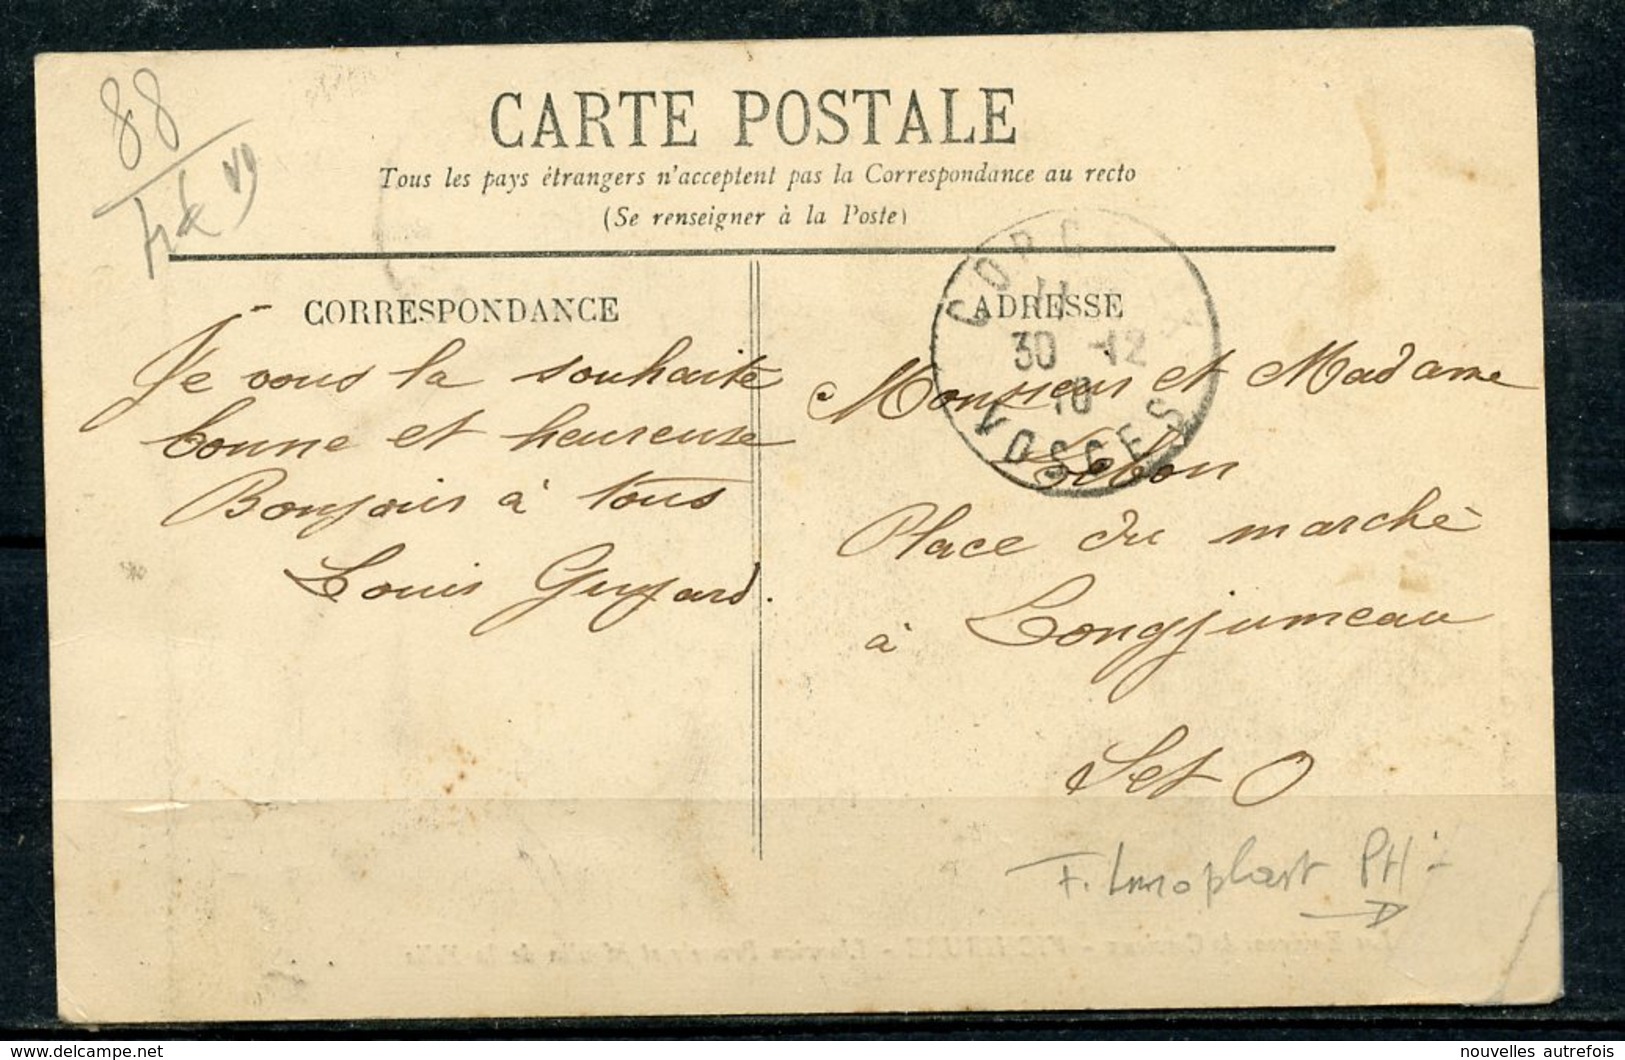 88
CARTE POSTALE
Tous les pays étrangers n'acceptent pas la Correspondance au recto
(Se renseigner à la Poste)
CORRESPONDANCE
Je vous la souhaite
bonne et heureuse
Bonjour à tous
Louis Guyard.
ADRESSE
Monsieur et Madame
Lebon
Place du marché
à Longjumeau
S et O
11
30 -12
10
VOSGES
VICHERE
delcampe.net
nouvelles autrefois